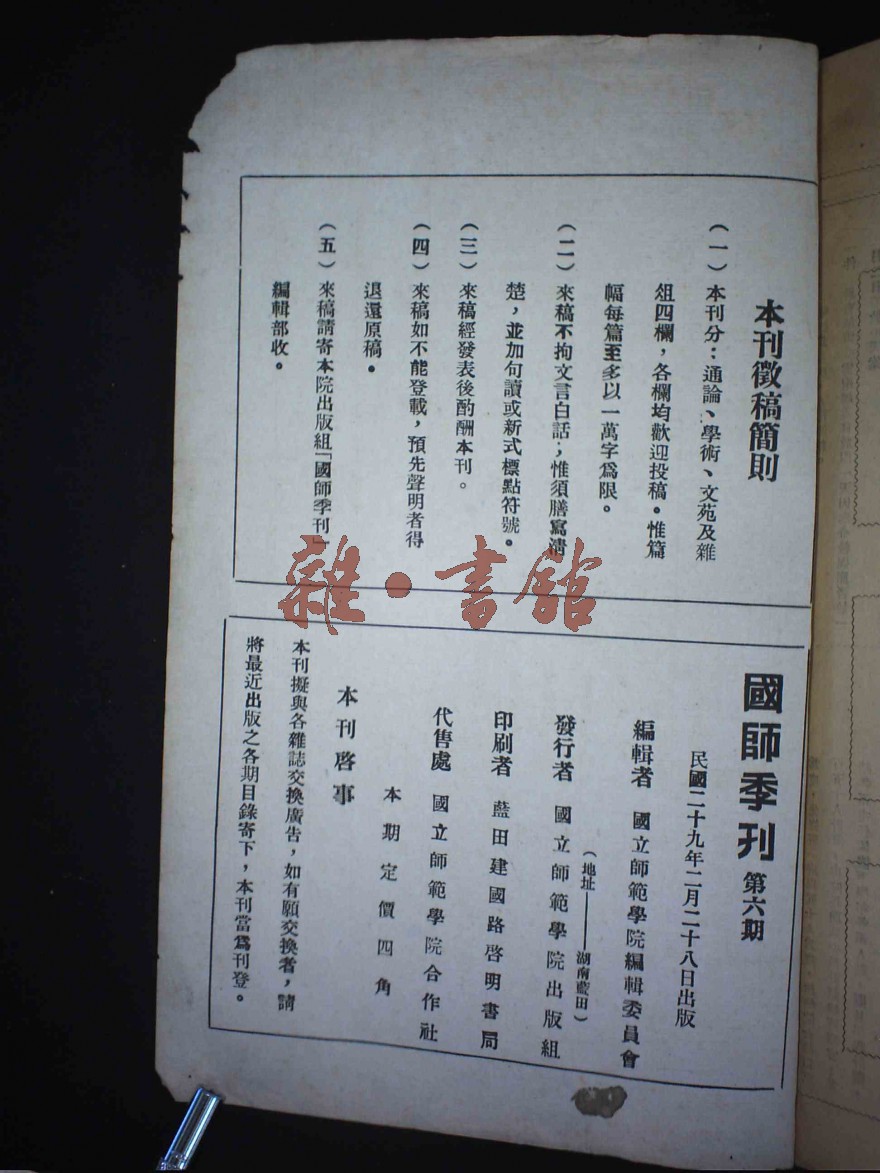 本刊徵稿簡則
（一）本刊分：通論、學術、文苑及雜
俎四欄，各欄均歡迎投稿。惟篇
幅每篇至多以一萬字爲限。
（二）來稿不拘文言白話；惟須謄寫清
楚，並加句讀或新式標點符號。
（三）來稿經發表後酌酬本刊。
（四）來稿如不能登載，預先聲明者得
退還原稿。
（五）來稿請寄本院出版組「國師季刊」
編輯部收。
國師季刊 第六期
民國二十九年二月二十八日出版
編輯者 國立師範學院編輯委員會
（地址——湖南藍田）
發行者 國立師範學院出版組
印刷者 藍田建國路啓明書局
代售處 國立師範學院合作社
本期定價四角
本刊啓事
本刊擬與各雜誌交換廣告，如有願交換者，請
將最近出版之各期目錄寄下，本刊當爲刊登。
雜·書館